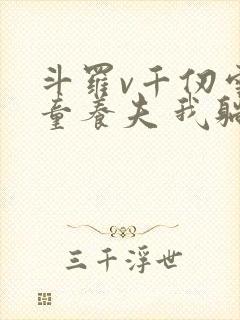 斗羅v千仞
童养夫我躺
三千浮世